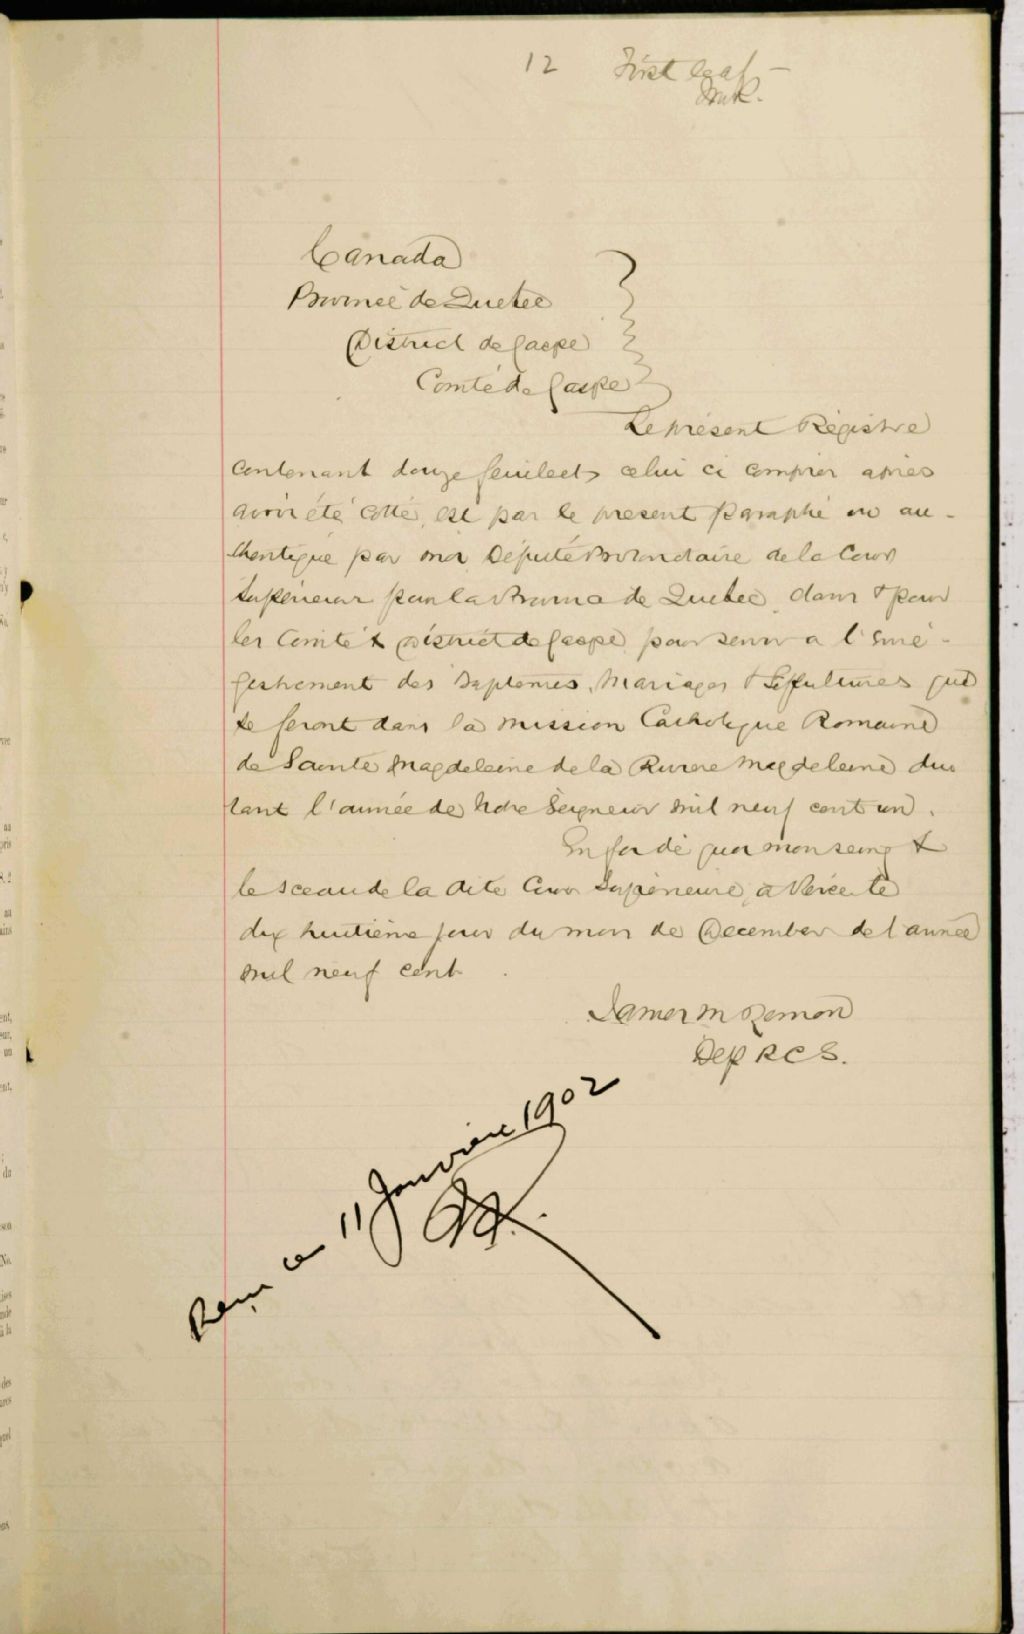 12 First leaf —
JMR.
Canada
Province de Quebec
District de Gaspe
Comté de Gaspe
Le présent Régistre
contenant douze feuillets celui ci compris aprés
avoir été cotté, est par le present paraphé et au-
thentiqué par moi Député Protonotaire de la Cour
Supérieur pour la Province de Quebec, dans & pour
les Comté & District de Gaspé, pour servir a l'Enré-
gestrement des Baptemes, Mariages & Sépultures qui
se feront dans la mission Catholique Romaine
de Sainte Magdeleine de la Riviere Magdeleine du
rant l'année de Notre Seigneur mil neuf cent un.
En foi de quoi mon seing &
le sceau de la dite Cour Supérieure, a Percé le
dix huitième jour du mois de December de l'année
mil neuf cent.
James M Remon
Dep P.C.S.
Reçu ce 11 Janvier 1902